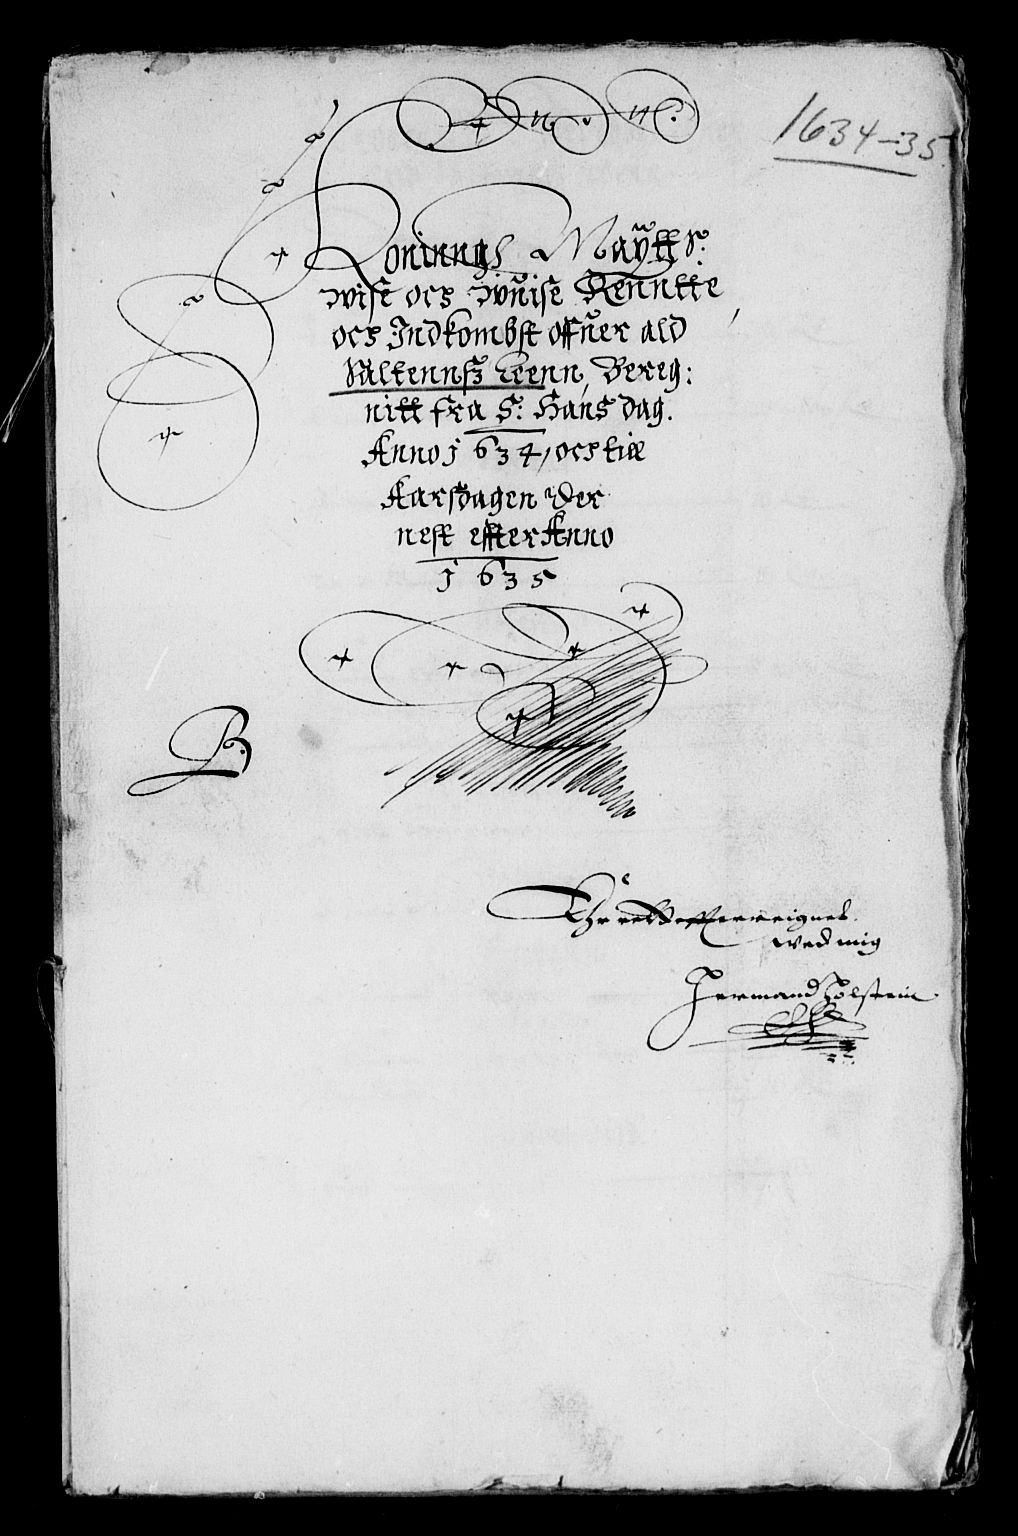 1634-35.
Koninngs Maÿtts:
wise ocs wuise Renntte
ocs Indkombst offuer ald
Saltennsz Leenn, Bereg:
nitt fra S: Hans dag.
Anno 1634, ocs till
Aarsdagen der
nest efter Anno
1635
B.
wed mig
Hermand Holstein